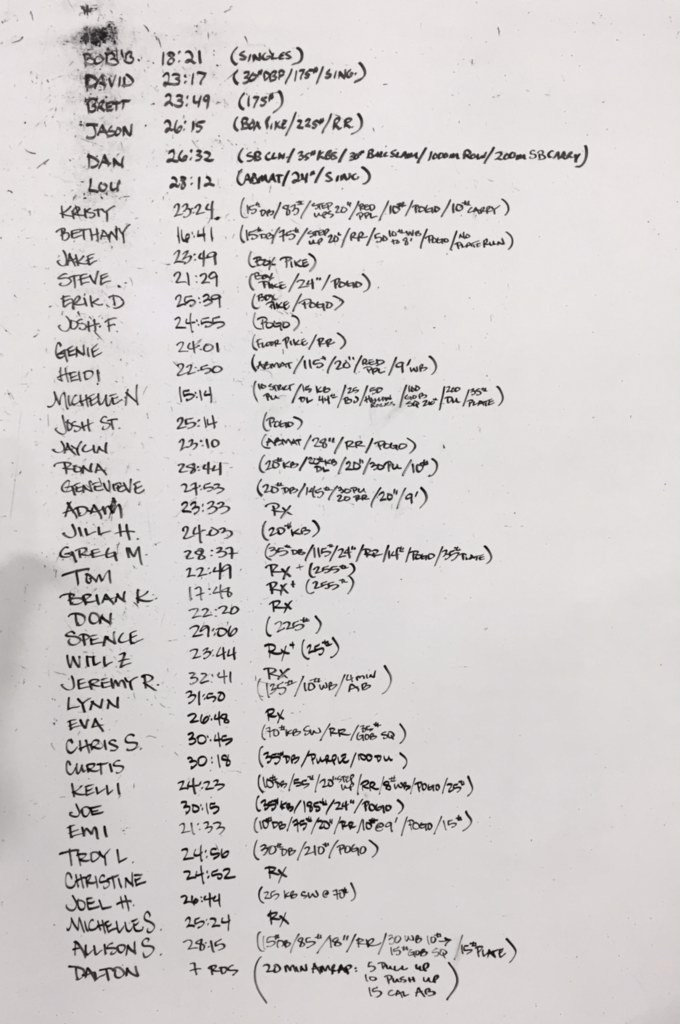 BOB B. 18:21 (SINGLES)
DAVID 23:17 (30# DBP/175#/SING.)
BRETT 23:49 (175#)
JASON 26:15 (BOX PIKE/225#/RR)
DAN 26:32 (SB CLN/35# KBS/30# BALL SLAM/1000m ROW/200m SB CARRY)
LOU 28:12 (ABMAT/24"/SING)
KRISTY 23:24 (15# DB/83#/STEP UPS 20"/RED PPL/10#/POGO/10# CARRY)
BETHANY 16:41 (15# DB/75#/STEP UP 20"/RR/50 10# WB TO 8'/POGO/NO PLATE RUN)
JAKE 23:49 (BOX PIKE)
STEVE 21:29 (BOX PIKE/24"/POGO)
ERIK D 25:39 (BOX PIKE/POGO)
JOSH F. 24:55 (POGO)
GENIE 24:01 (FLOOR PIKE/RR)
HEIDI 22:50 (ABMAT/115#/20"/RED PPL/9' WB)
MICHELLE N 15:14 (10 STRICT PU/15 KB DL 44#/25 BJ/50 /100 GOB SQ 26#/200 DU/35# PLATE)
JOSH ST. 25:14 (POGO)
JAYCIN 23:10 (ABMAT/28"/RR/POGO)
RONA 28:44 (20# KB/ DL/20"/30 PU/10#)
GENEVIEVE 27:53 (20# DB/145#/30 PU 20 RR/20"/9')
ADAM 23:33 RX
JILL H. 24:03 (20# KB)
GREG M. 28:37 (35# DB/115#/24"/RR/14#/POGO/35# PLATE)
TOM 22:49 RX+ (255#)
BRIAN K. 17:48 RX+ (255#)
DON 22:20 RX
SPENCE 29:06 (225#)
WILL Z 23:44 RX+ (25#)
JEREMY R. 32:41 RX
LYNN 31:50 (135#/10# WB/4 MIN AB)
EVA 26:48 RX
CHRIS S. 30:45 (70# KB SW/RR/35# GOB SQ)
CURTIS 30:18 (35# DB/PURPLE/100 DU)
KELLI 24:23 (10# DB/55#/20" STEP UP/RR/8# WB/POGO/25#)
JOE 30:15 (35# KB/185#/24"/POGO)
EMI 21:33 (10# DB/75#/20"/RR/10# @ 9'/POGO/15#)
TROY L. 24:56 (30# DB/210#/POGO)
CHRISTINE 24:52 RX
JOEL H. 26:44 (25 KB SW @ 70#)
MICHELLE S. 25:24 RX
ALLISON S. 28:15 (15# DB/85#/18"/RR/30 WB 10#→ 15# GOB SQ/15# PLATE)
DALTON 7 RDS (20 MIN AMRAP: 5 PULL UP
10 PUSH UP
15 CAL AB)